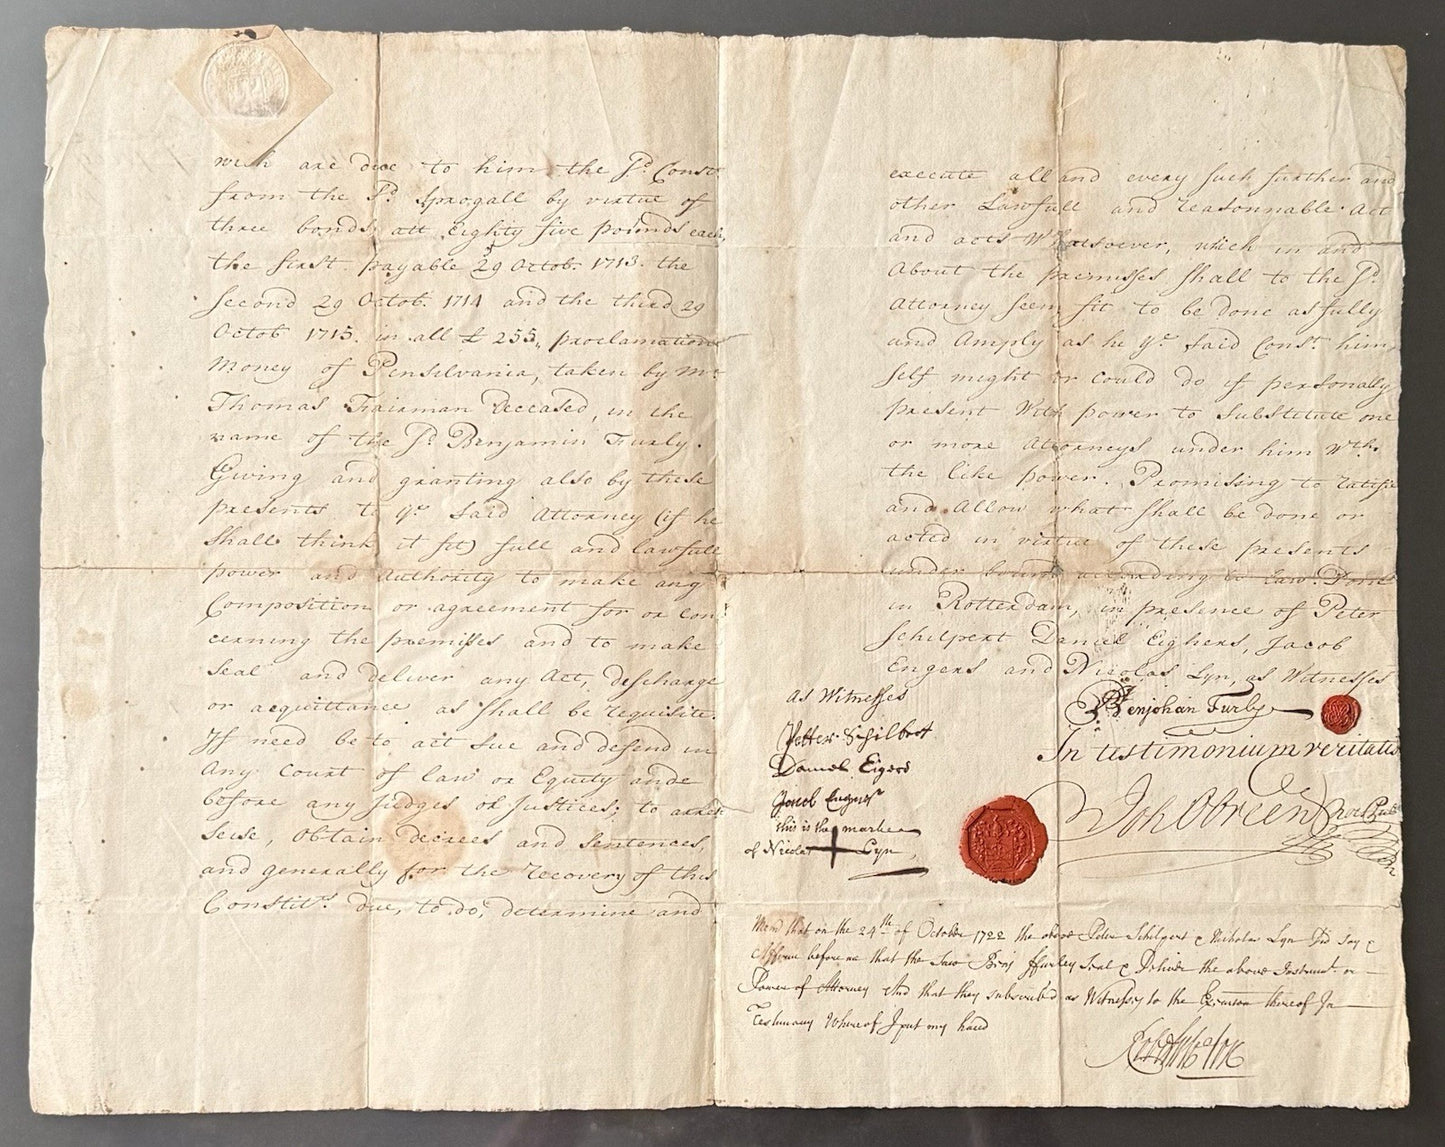 wch are due to him the sd. Constt
from the sd. Sprogall by virtue of
three bonds att eighty five pounds each,
the first payable 29 Octob. 1713. the
second 29 Octob. 1714 and the third 29
Octob 1715. in all £ 255,, proclamation
Money of Pensilvania, taken by Mr.
Thomas Fairman Deceased, in the
name of the sd Benjamin Furly.
Giving and granting also by these
presents to ye. said Attorney (if he
shall think it fit) full and lawfull
power and Authority to make any
Composition or agreement for or con
cerning the premisses and to make
seal and deliver any Act, discharge
or acquittance as shall be requisite.
If need be to act sue and defend in
any Court of law or Equity and
before any Judges or Justices; to arrest
seise, obtain decrees and sentences,
and generally for the recovery of this
Constits. due, to do, determine and
execute all and every such further and
other Lawfull and reasonnable Act
and acts Whatsoever, which in and
About the premisses shall to the sd.
Attorney seem fit to be done as fully
and Amply as he ye. said Constt. him
self might or could do if personally
present With power to substitute one
or more Attorneys under him wth.
the like power. Promising to ratifie
and Allow what shall be done or
acted in virtue of these presents
under bound according to Law. Done
in Rotterdam, in presence of Peter
Schilpert Daniel Eighers, Jacob
Engers and Nicolas Lyn, as Witnesses
As Witnesses
Petter Schilbert
Daniel Eigers
Jacob Engers
this is the marke
of Nicolas + Lyn,
Benjohan Furly
In testimonium veritatis
Joh OBreen Not Pub
Mem̄d that on the 24th of October 1722 the above Peter Schilpert & Nicholas Lyn Did say &
Affirm before me that the saw Benj ffurley Seal & Deliver the above Instrumt. or
Power of Attorney And that they subscribed as Witnesses to the Execution thereof In
Testimony Whereof I put my hand